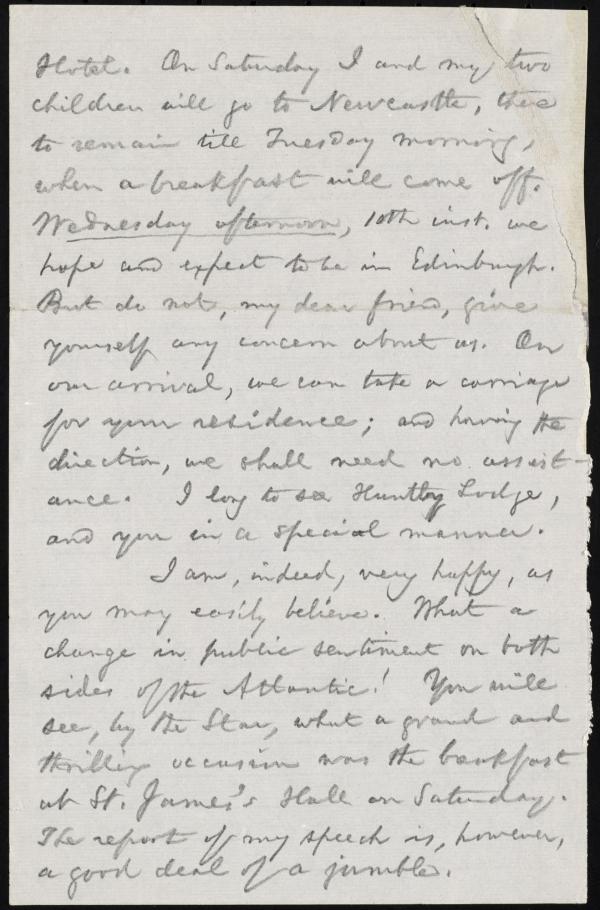 Hotel. On Saturday I and my two
children will go to Newcastle, there
to remain till Tuesday morning,
when a breakfast will come off.
Wednesday afternoon, 10th inst. we
hope and expect to be in Edinburgh.
But do not, my dear friend, give
yourself any concern about us. On
our arrival, we can take a carriage
for your residence; and having the
direction, we shall need no assist-
ance. I long to see Huntley Lodge,
and you in a special manner.
I am, indeed, very happy, as
you may easily believe. What a
change in public sentiment on both
sides of the Atlantic! You will
see, by the Star, what a grand and
thrilling occasion was the breakfast
at St. James's Hall on Saturday.
The report of my speech is, however,
a good deal of a jumble.